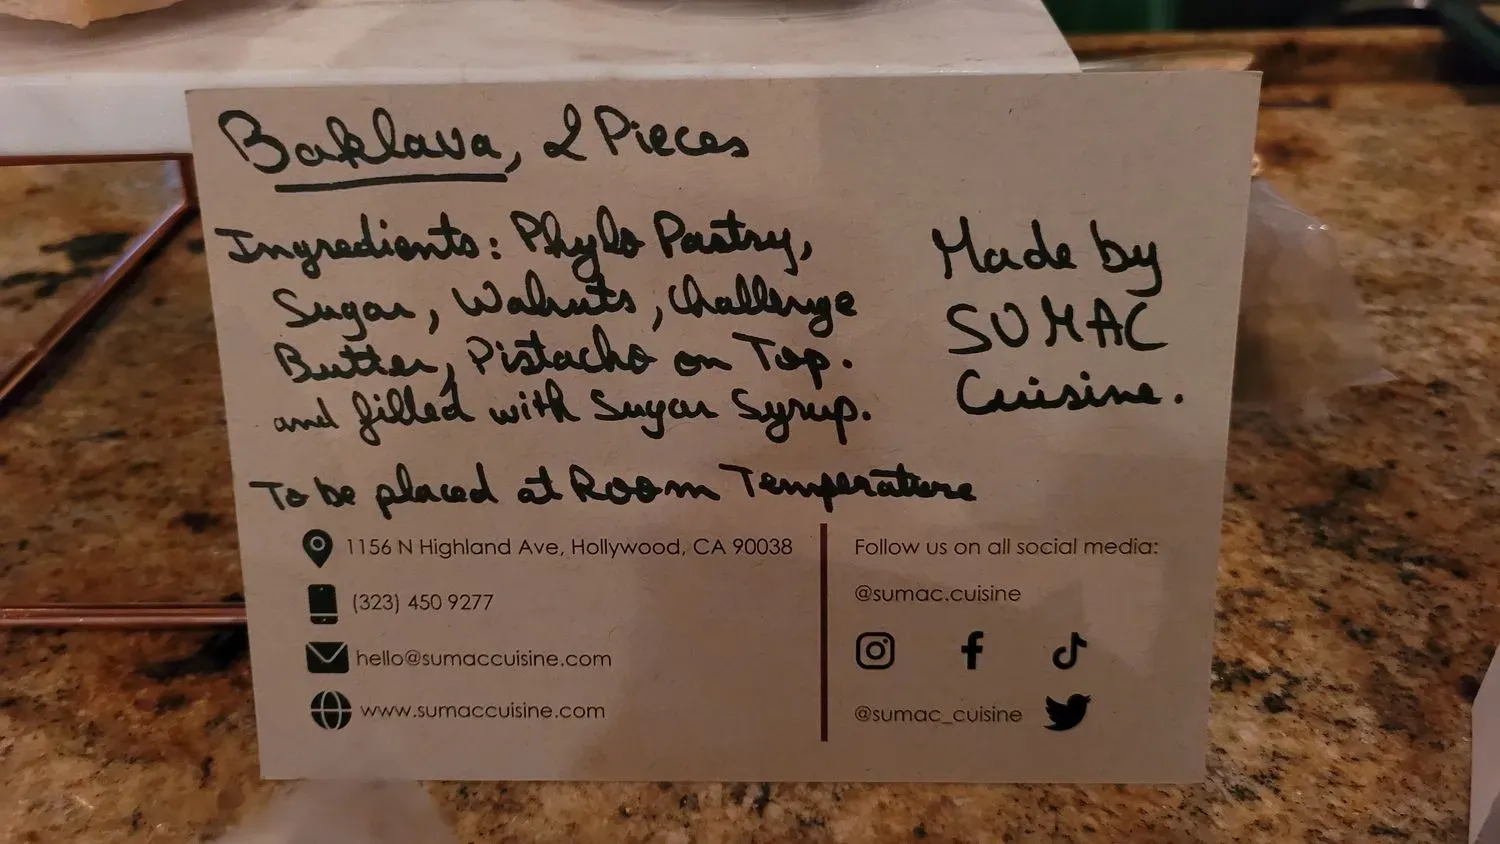 Baklava, 2 Pieces
Ingredients: Phylo Pastry,
Sugar, Walnuts, Challenge
Butter, Pistacho on Top.
and filled with Sugar Syrup.
To be placed at Room Temperature
Made by
SUMAC
Cuisine.
1156 N Highland Ave, Hollywood, CA 90038
(323) 450 9277
hello@sumaccuisine.com
www.sumaccuisine.com
Follow us on all social media:
@sumac.cuisine
@sumac_cuisine